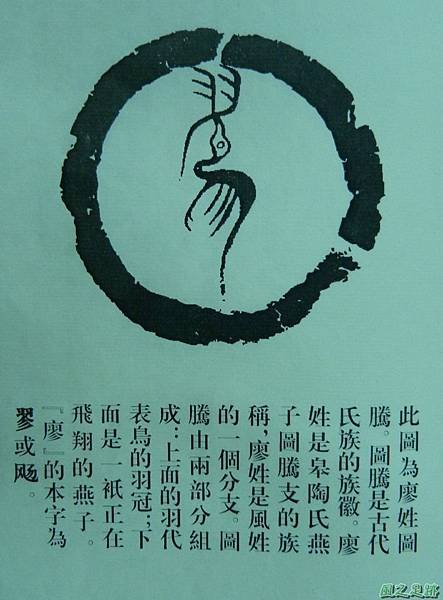 此圖為廖姓圖
騰。圖騰是古代
氏族的族徽。廖
姓是皋陶氏燕
子圖騰支的族
稱；廖姓是風姓
的一個分支。圖
騰由兩部分組
成：上面的羽代
表鳥的羽冠；下
面是一衹正在
飛翔的燕子。
『廖』的本字為
翏或飏。